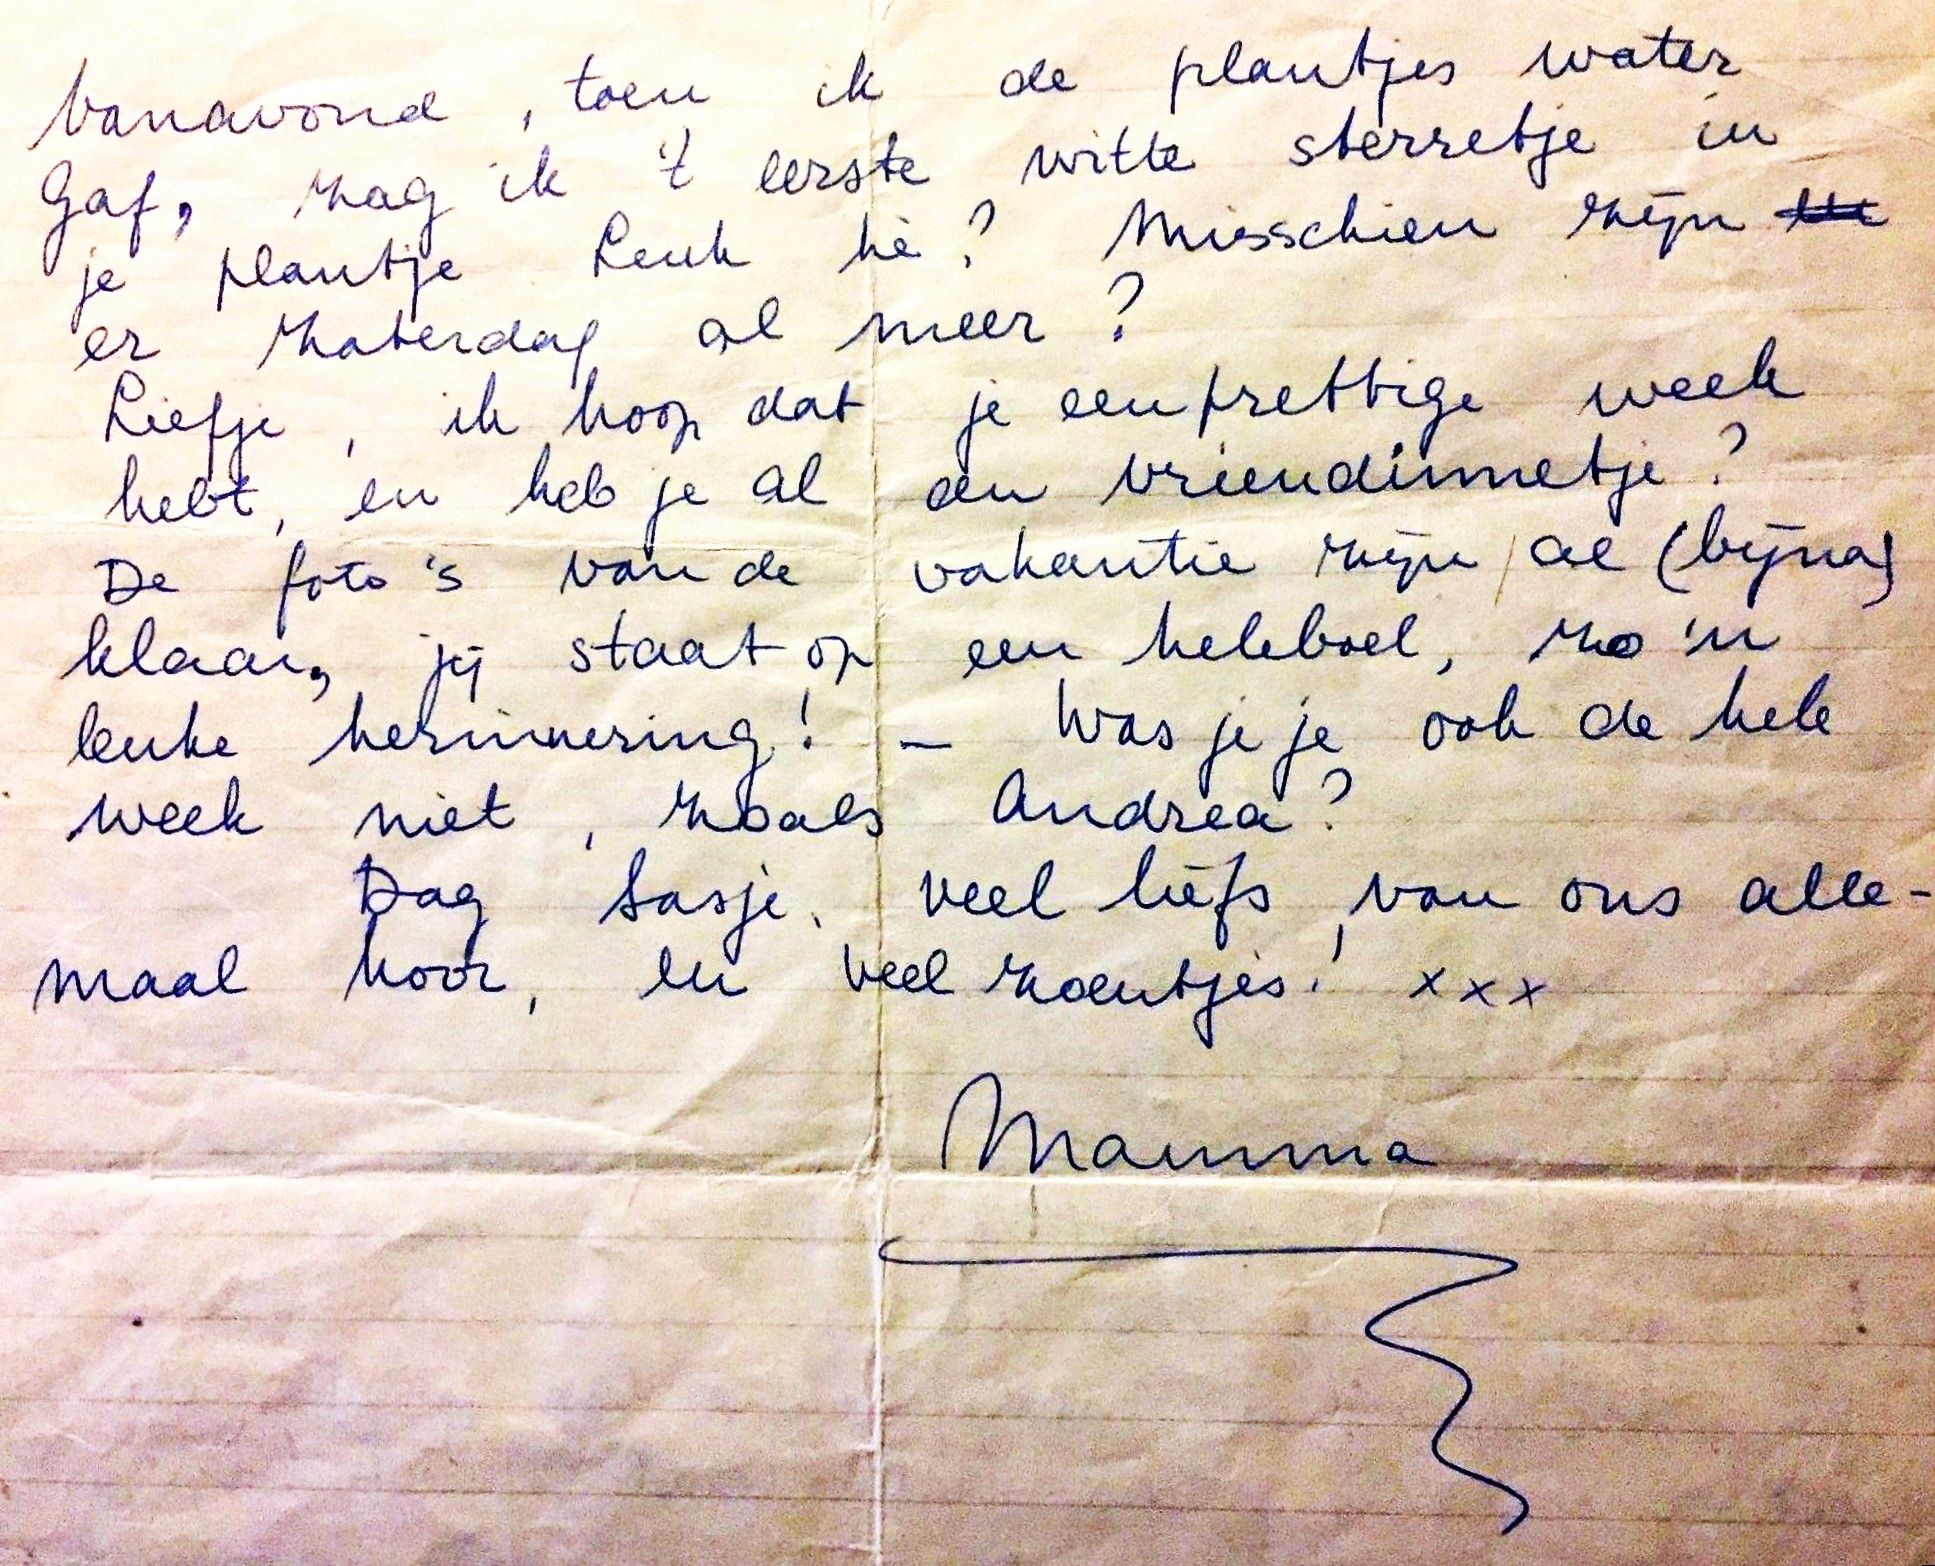 Vanavond, toen ik de plantjes water
Gaf, zag ik 't eerste witte sterretje in
je plantje Leuk hè? Misschien zijn
er Zaterdag al meer?
Liefje, ik hoop dat je een prettige week
hebt, en heb je al een vriendinnetje?
De foto's van de vakantie zijn al (bijna)
klaar, jij staat op een heleboel, zo'n
leuke herinnering! – Was je je ook de hele
week niet, zoals Andrea?
Dag Sasje. Veel liefs van ons alle-
maal hoor, en veel zoentjes! xxx
Mamma